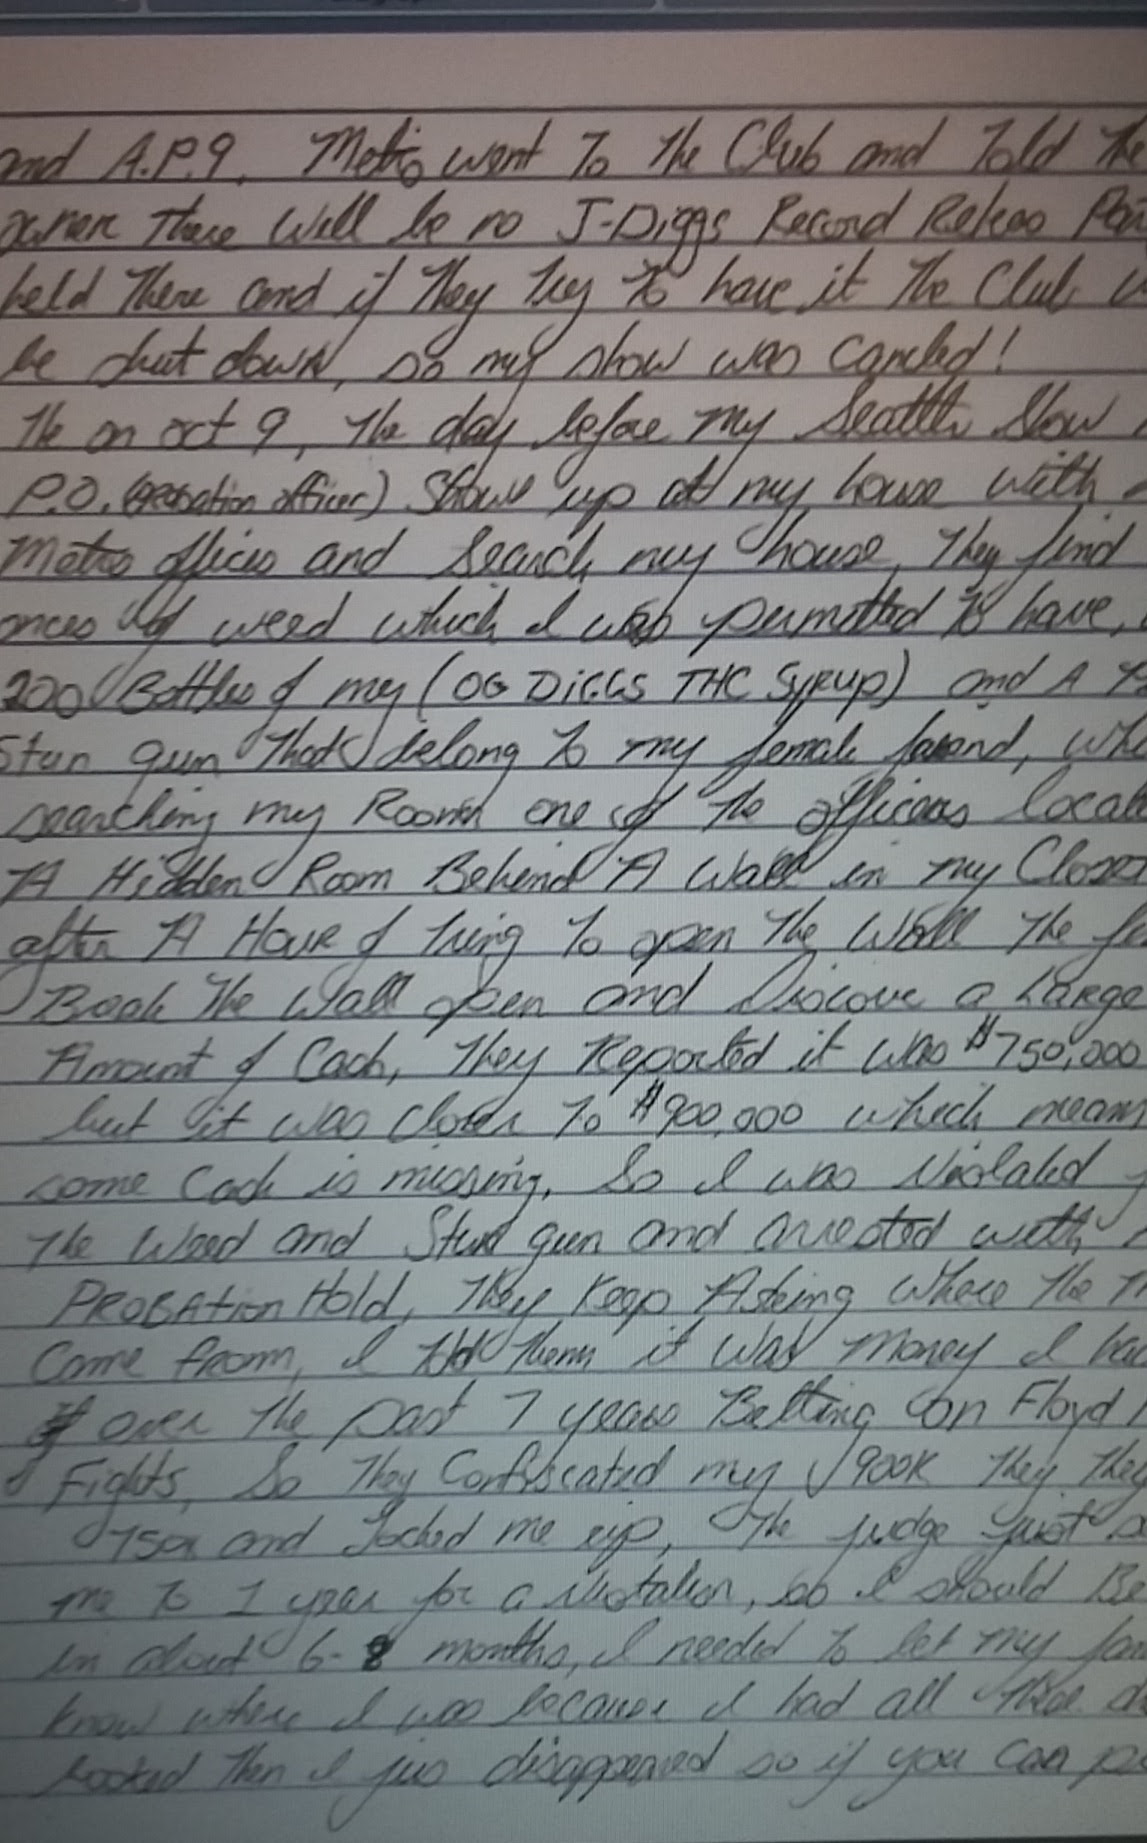 and A.P.9. Metro went To the Club and Told the
owner There Will be no J-Diggs Record Releas
held There and if They try To have it The Club
be shut down, so my show was Cancled!
The on oct 9, The day before my Seattle Show
P.O. (Probation officer) Shows up at my house with
Metro officis and Search my house, They find
onces of weed which I was permitted To have,
200 Bottles of my (OG DIGGS THC SYRUP) and A
Stun gun That belong To my female friend,
searching my Room one of The officers
A Hidden Room Behind A Wall in my Closet
after A Hour of tring To open The Wall The
Break The Wall open and Discove a Large
Amount of Cash, They Reported it was $750,000
but it was closer To $900,000 which mean
some Cash is missing. So I was Violated
The Weed and Stun gun and arrested with
PROBATION Hold, They Keep Asking where The
Come from, I told Them it was Money I
over The past 7 years Betting on Floyd
Fights, So They Confiscated my 900K They They
750k and Locked me up, The judge just
me To 1 year for a violation, so I should Be
in about 6-8 months, I needed To let my
know where I was because I had all These
booked Then I jus disappeared so if you can